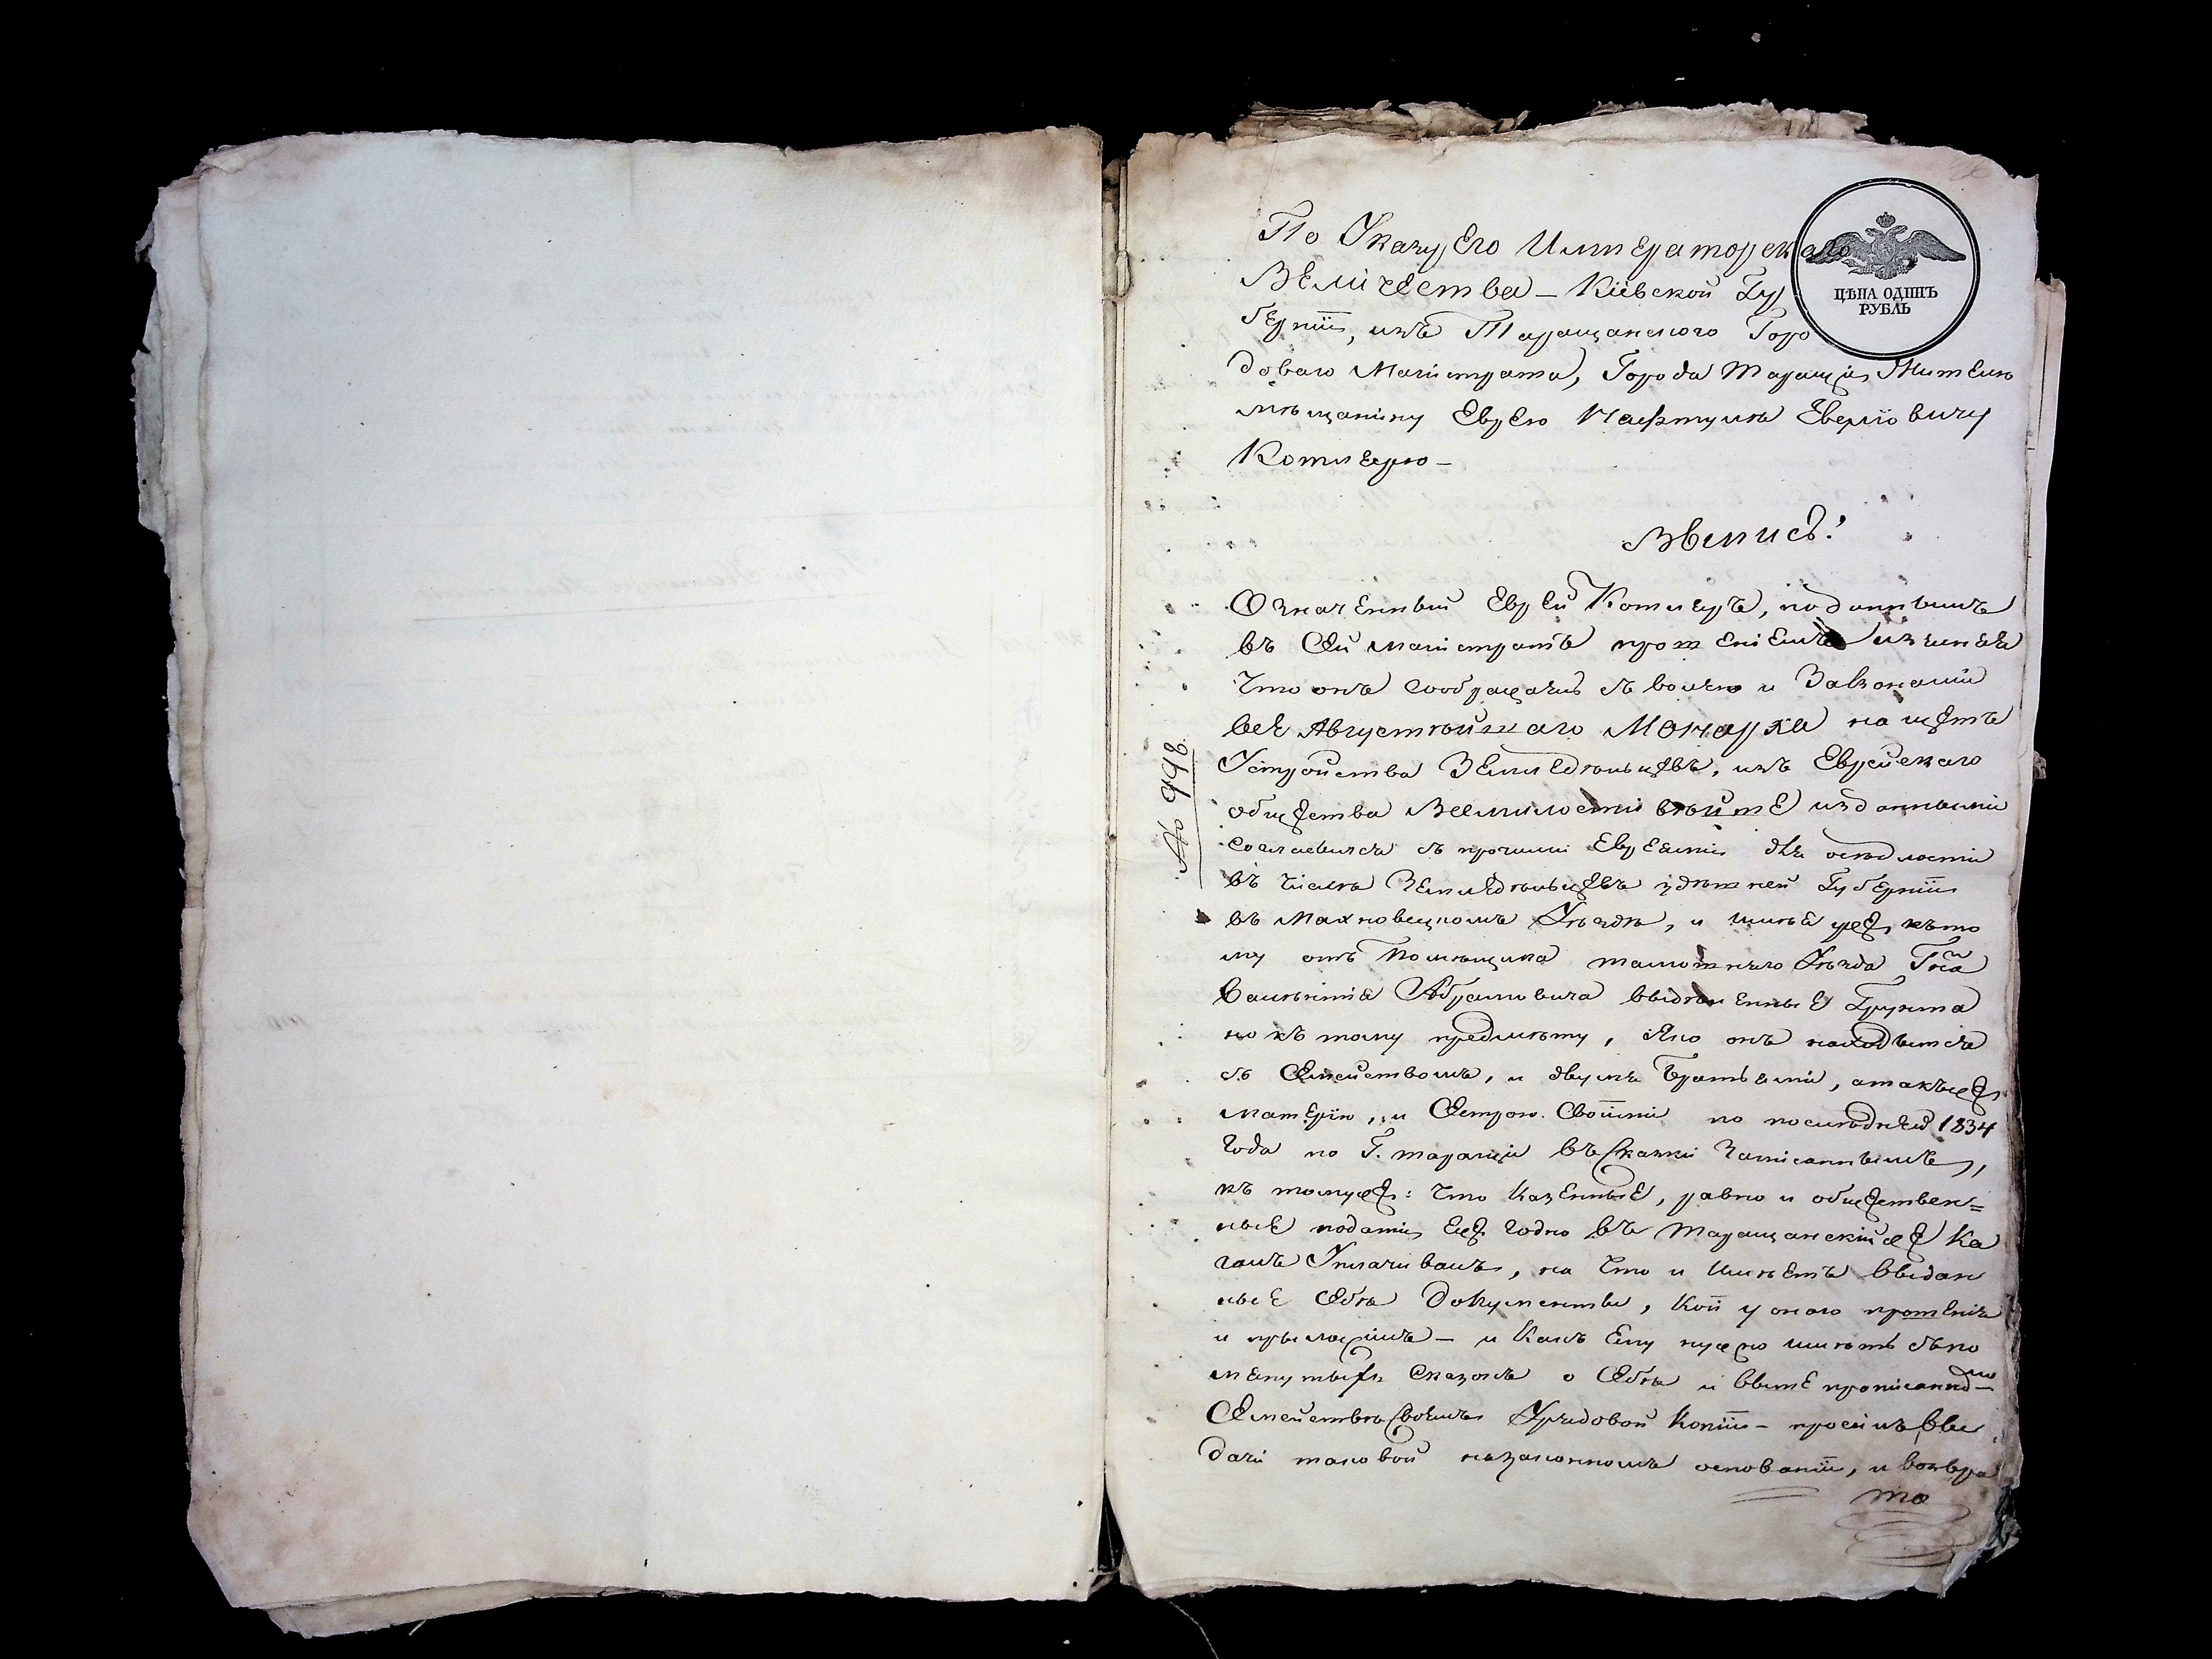 По Указу Его Императорскаго
ЦѢНА ОДИНЪ
РУБЛЬ
Величества – Кіевской Гу
берніи, изъ Таращанского Горо
доваго Магистрата, Города Таращи, Жителю
мѣщанину Еврею Нафтулѣ Беркіовичу
Котляру –
№ 998
Означенный Еврей Котляръ, поданнымъ
въ Сей магистратъ прошеніемъ изъяснялъ
Что онъ Сообразаясь съ волею и Законами
все Августѣйшаго Монарха на щетъ
Устройства Земледѣльцевъ, изъ Еврейскаго
общества Всемилостивѣйше изданными
согласился съ прочими Евреями для осѣдлости
въ число Земледѣльцевъ здѣшней Губерніи
въ Махновецкомъ Уѣздѣ, и имѣя уже къто
му отъ Помѣщика тамошняго Уѣзда Гна
Валентія Абрамовича выдѣленные Грунта
но къ тому предмѣту, Яко онъ находытся
съ Семействомъ, и двумя Братьями, атакъже
матерію, и Сестрою Своими по послѣдней 1834
года по Г. таращи въ Сказки Записаннымъ,
къ томуже: Что Казенные, равно и обществен=
ные подати ежегодно въ Таращанскій же Ка
галъ Уплачивалъ, на Что и Имѣетъ выдан
ные Себѣ документы, Кои у оного прошенія
и прыложилъ – и Какъ Ему нужно имѣть съпо
мянутыхъ Сказокъ о Себѣ и выше прописанномъ
Семействѣ Своемъ Урядовой Копіи – просилъ вы
дачи таковой назаконномъ основаніи, и возвра
та